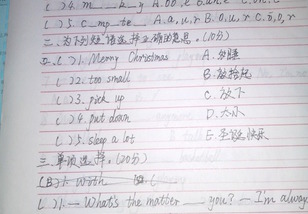 ( )4. m__k_y A. oo, e B. un, e C.
( )5. c_mp_te_ A. a, u, r B. o, u, r C. o, o, r
二、为下列短语选择正确的意思。(10分)
( )1. Merry Christmas A. 多睡
( )2. too small B. 放捡起
( )3. pick up C. 放下
( )4. put down D. 太小
( )5. sleep a lot E. 圣诞快乐
三、单项选择。(20分)
( )1. — What's the matter ___ you? — I'm always